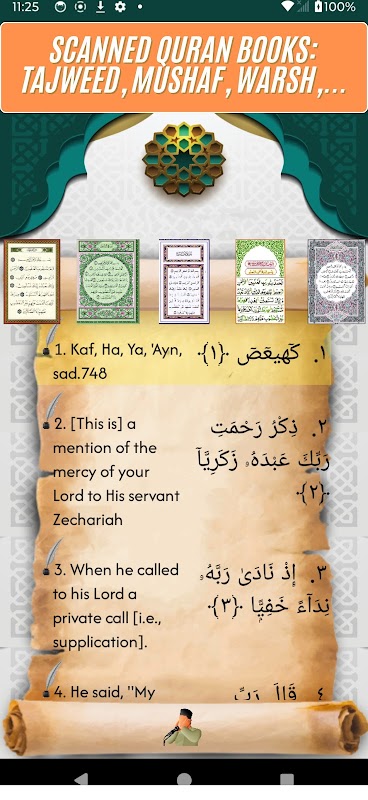 11:25
100%
SCANNED QURAN BOOKS:
TAJWEED, MUSHAF, WARSH,...
1. Kaf, Ha, Ya, 'Ayn,
sad.748
١. كٓهيعٓصٓ ﴿١﴾
2. [This is] a
mention of the
mercy of your
Lord to His servant
Zechariah
٢. ذِكْرُ رَحْمَتِ
رَبِّكَ عَبْدَهُۥ زَكَرِيَّآ
﴿٢﴾
3. When he called
to his Lord a
private call [i.e.,
supplication].
٣. إِذْ نَادَىٰ رَبَّهُۥ
نِدَآءً خَفِيًّا ﴿٣﴾
4. He said, "My
٤. قَالَ رَبِّ